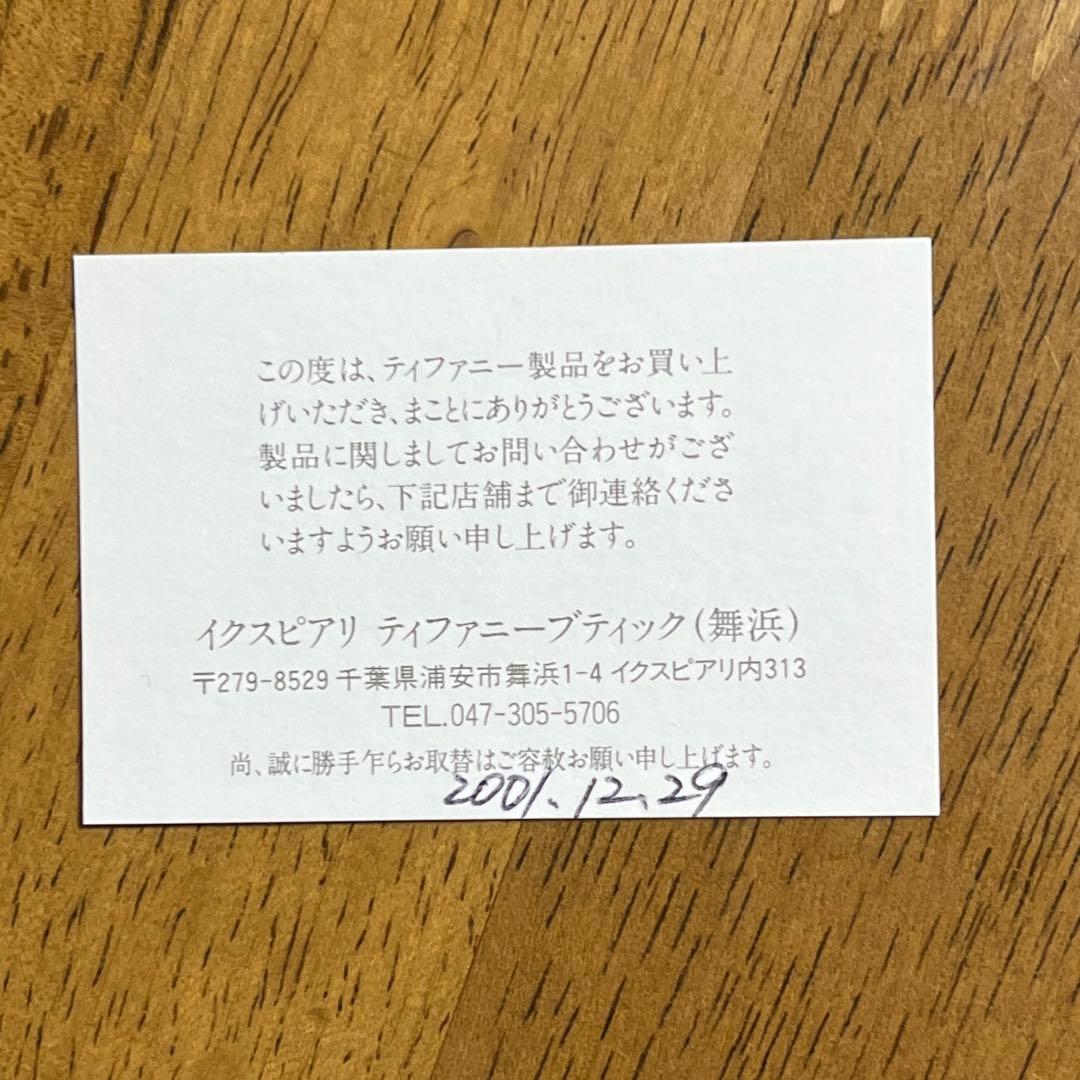 この度は、ティファニー製品をお買い上
げいただき、まことにありがとうございます。
製品に関しましてお問い合わせがござ
いましたら、下記店舗まで御連絡くださ
いますようお願い申し上げます。
イクスピアリ ティファニーブティック(舞浜)
〒279-8529 千葉県浦安市舞浜1-4 イクスピアリ内313
TEL.047-305-5706
尚、誠に勝手乍らお取替はご容赦お願い申し上げます。
2001.12.29